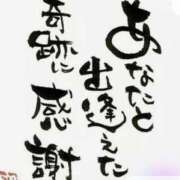 あなたと
出逢えた
奇跡に
感謝